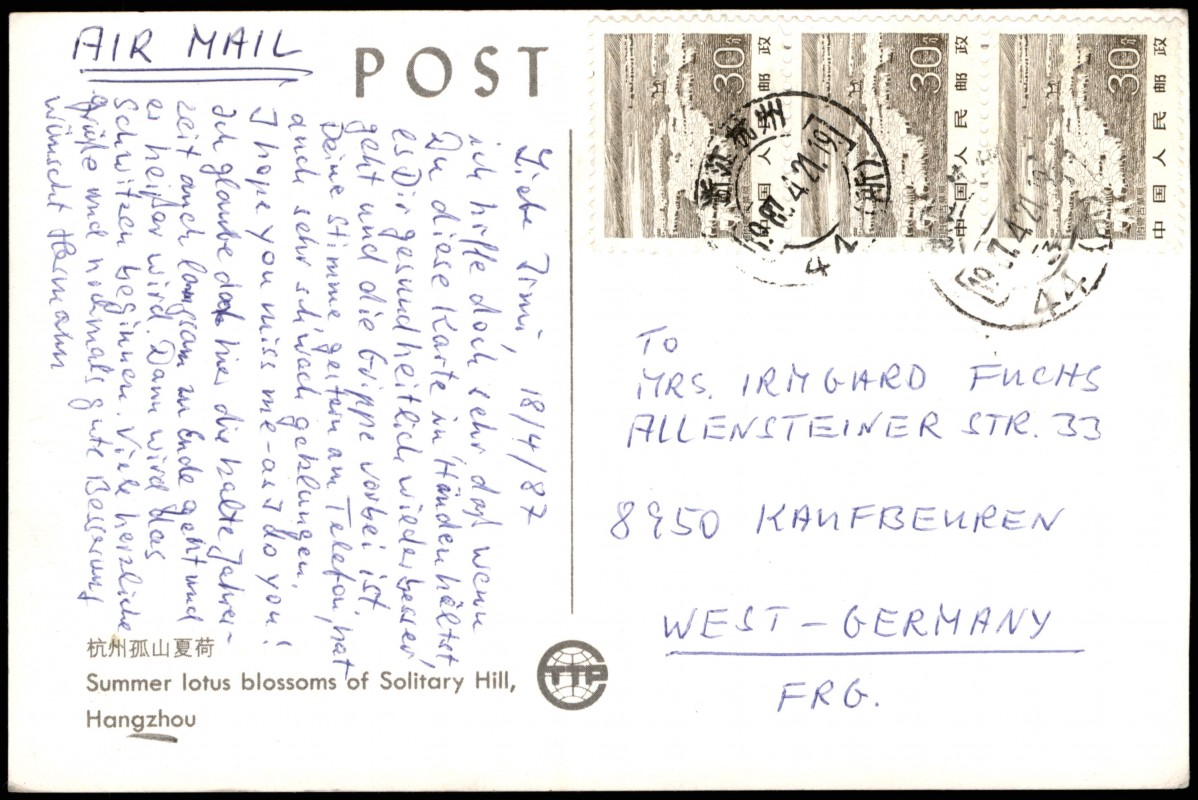 AIR MAIL
POST
Liebe Irmi, 18/4/87
ich hoffe doch sehr daß wenn
Du diese Karte in Händen hältst,
es Dir gesundheitlich wieder besser
geht und die Grippe vorbei ist.
Deine Stimme gestern am Telefon, hat
auch sehr schwach geklungen.
I hope you miss me - as I do you!
Ich glaube daß hier die kalte Jahres-
zeit auch langsam zu Ende geht und
es heißer wird. Dann wird das
Schwitzen beginnen. Viele herzliche
Grüße und nochmals gute Besserung
wünscht Hermann
杭州孤山夏荷
Summer lotus blossoms of Solitary Hill,
Hangzhou
TTP
30分
中国人民邮政
30分
中国人民邮政
30分
中国人民邮政
浙江
1987.4.21.19
44
TO
MRS. IRMGARD FUCHS
ALLENSTEINER STR. 33
8950 KAUFBEUREN
WEST-GERMANY
FRG.